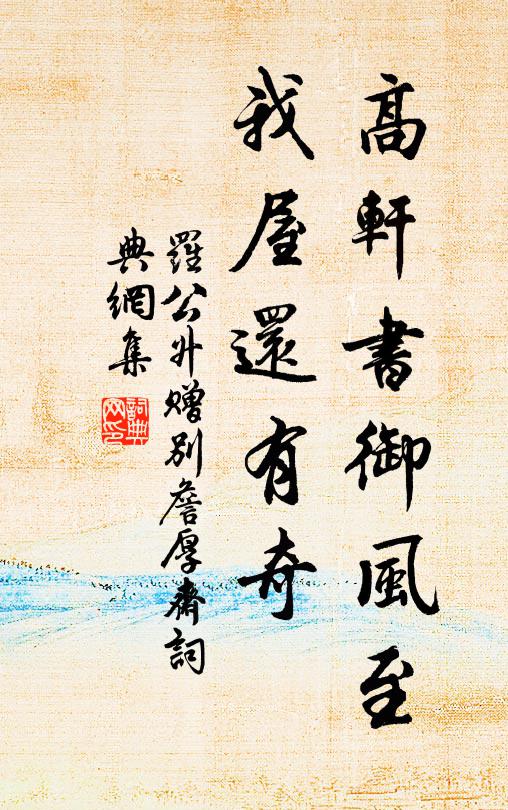 高軒書御風至
我屋還有奇
羅公升贈別詹厚齋詞
典網集
詞典網印